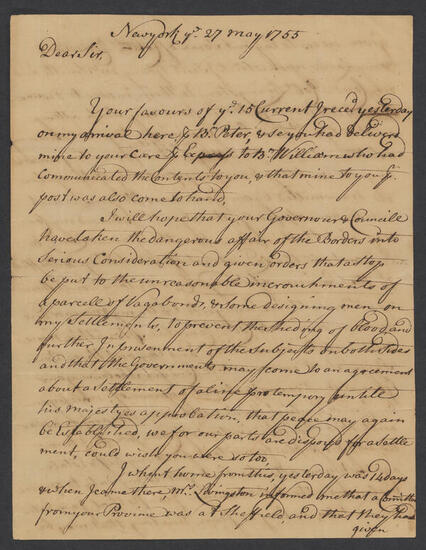 Newyork yᵉ 27 may 1755
Dear Sir,
Your favours of yᵉ 15 Current I recᵈ yesterday
on my arrival here ⅌ Bʳ Peter, & se you had delivered
mine to your Care ⅌ Express to Bʳ William who had
Communicated the Contents to you, & that mine to you ⅌
post was also come to hand,
I will hope that your Governour & Councill
have taken the dangerous affair of the Borders into
Serious Consideration and given orders that a stop
be put to the unreasonable incrouchments of
a parcell of Vagabonds, & some designing men on
my Settlements, to prevent the sheding of blood and
further Imprisenment of the Subjects on both Sides
and that the Governments may come to an agreement
about a Settlement of a line protemporn untile
his majestyes approbation, that peace may again
be Established, we for our parts are disposed for a Settle
ment, could wish you were so too
I whent home from this, yesterday was 14 days
& when I came there, Mʳ Livingston informed me that a Comitte
from your Provinc was at Sheffield, and that they had
given